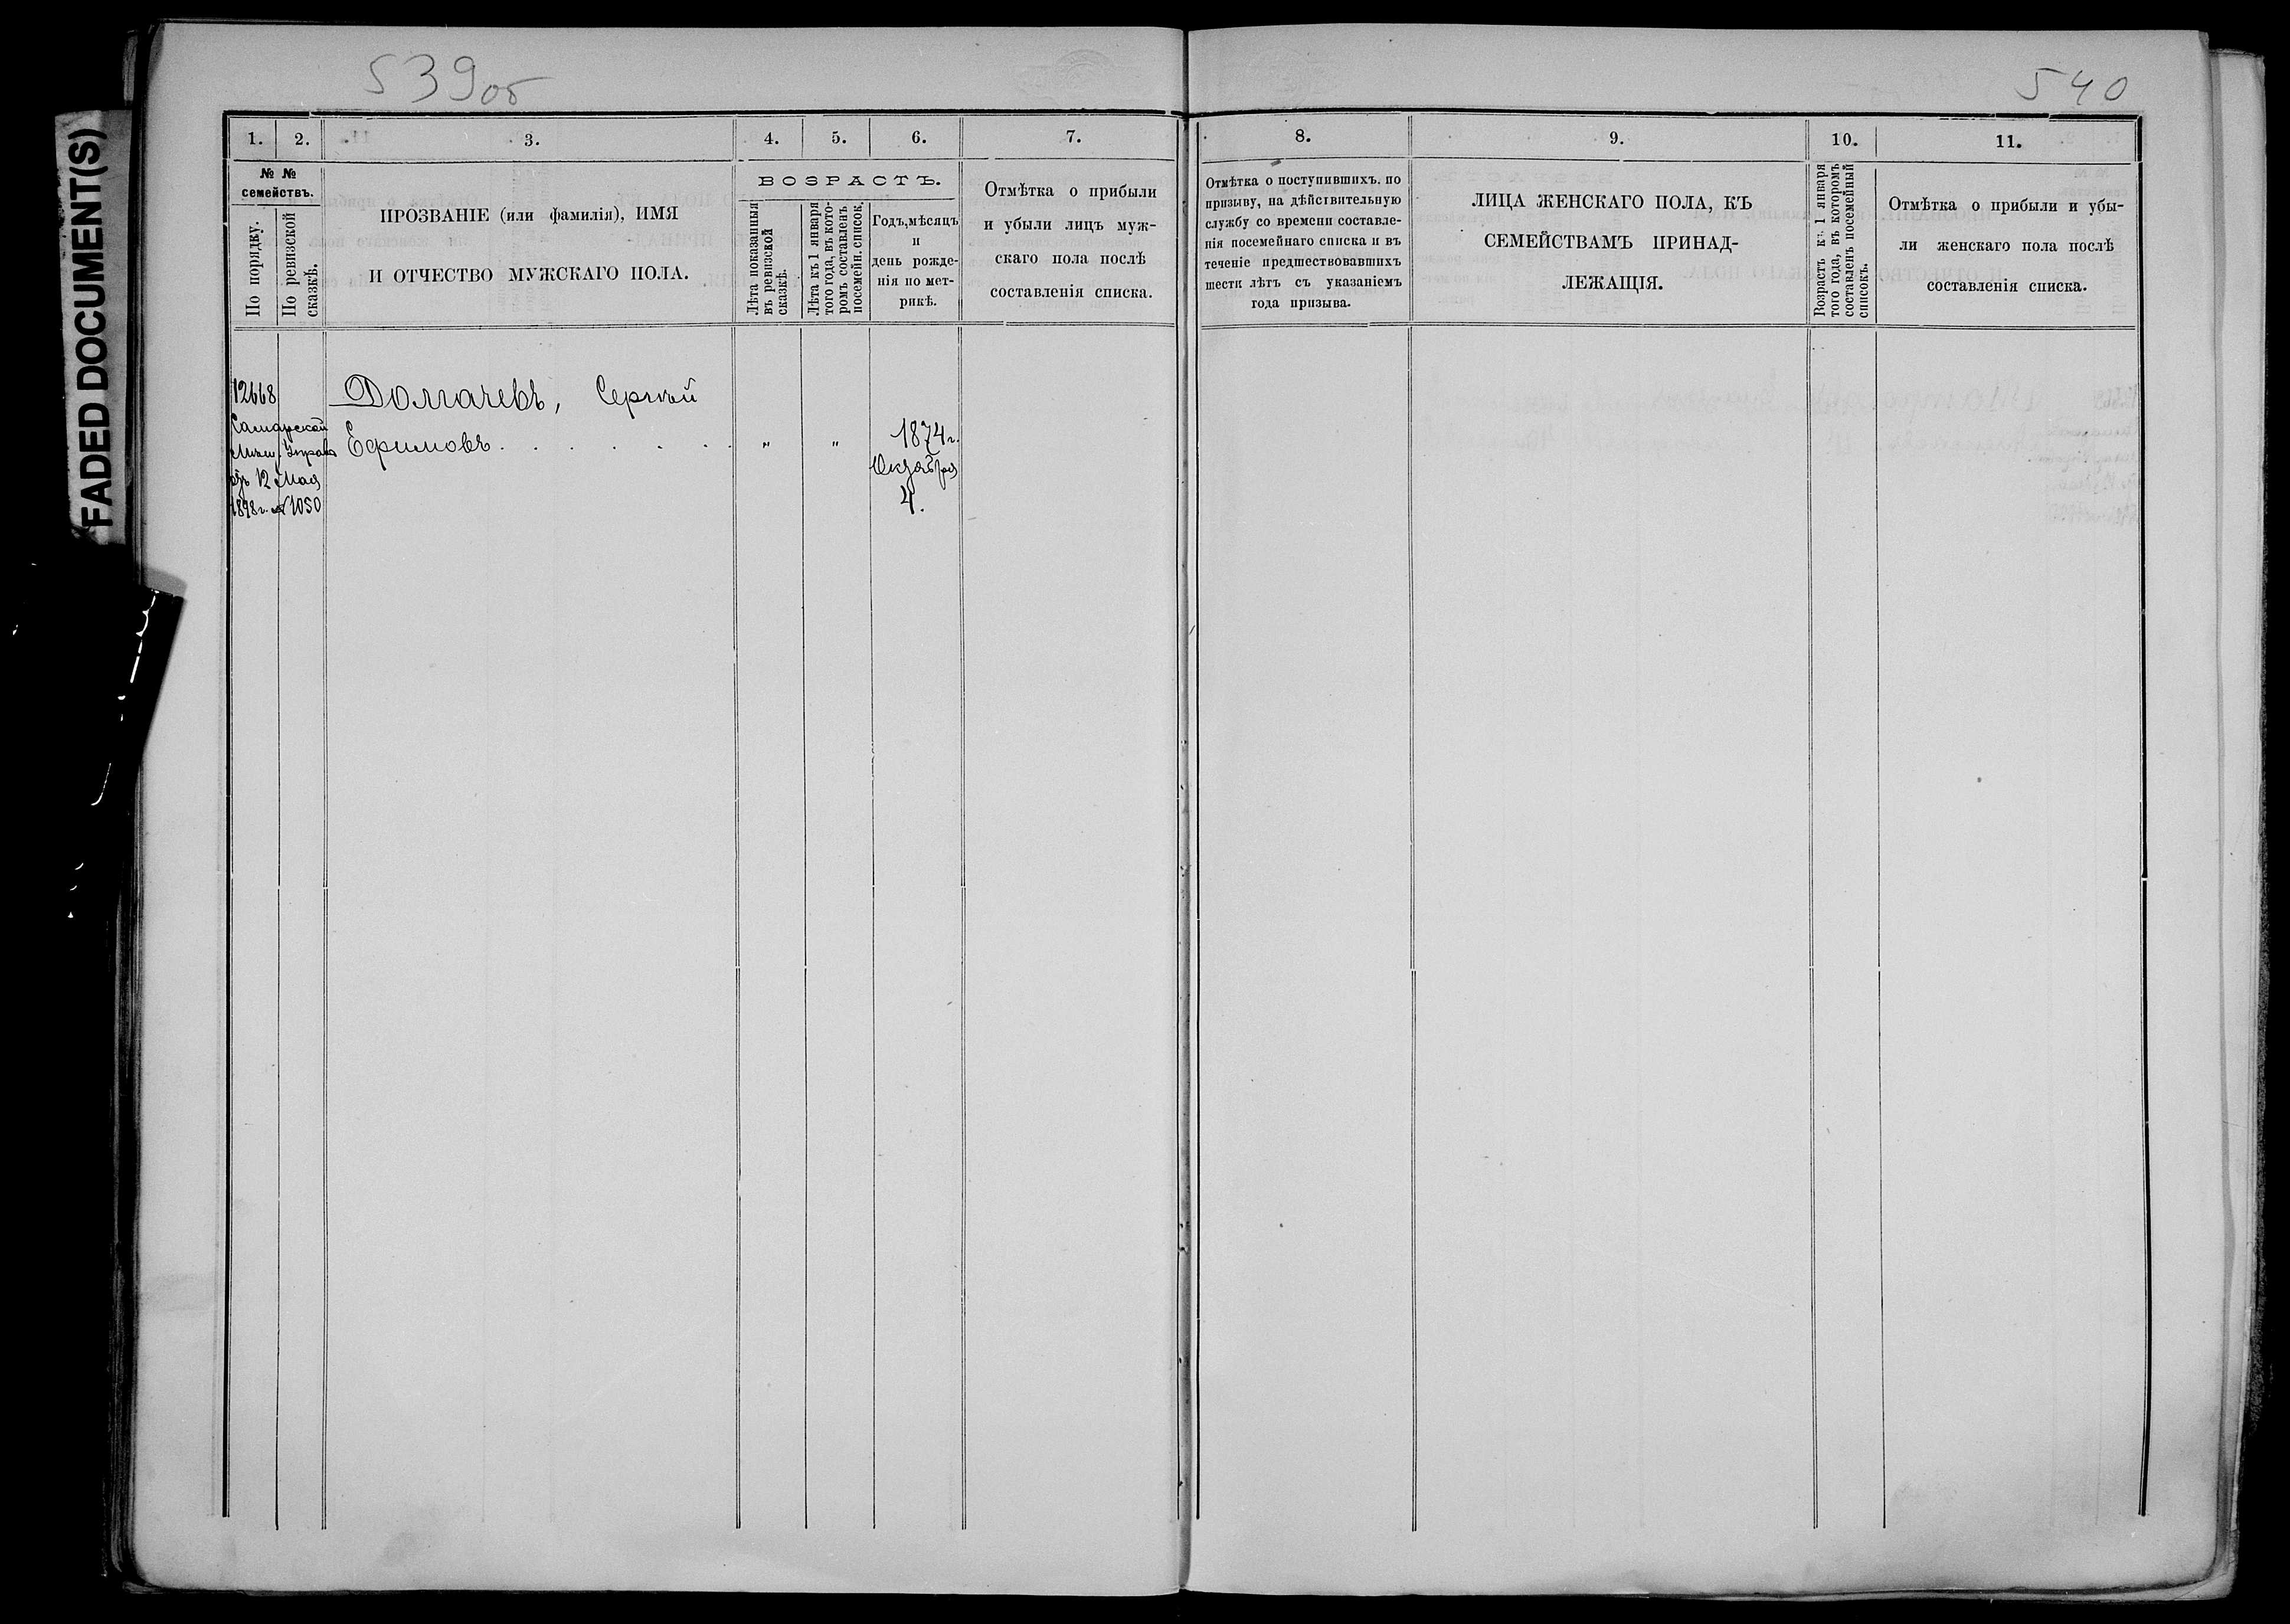 FADED DOCUMENT(S)
539об
540
1. 2. 3. 4. 5. 6. 7. 8. 9. 10. 11.
№ №
семействъ.
По порядку.
По ревизской
сказкѣ.
ПРОЗВАНІЕ (или фамилія), ИМЯ
И ОТЧЕСТВО МУЖСКАГО ПОЛА.
ВОЗРАСТЪ.
Лѣта показанныя
въ ревизской
сказкѣ.
Лѣта къ 1 января
того года, въ кото-
ромъ составленъ
посемейн. список.
Годъ, мѣсяцъ
и
день рожде-
нія по мет-
рикѣ.
Отмѣтка о прибыли
и убыли лицъ муж-
скаго пола послѣ
составленія списка.
Отмѣтка о поступившихъ. по
призыву, на дѣйствительную
службу со времени составле-
нія посемейнаго списка и въ
теченіе предшествовавшихъ
шести лѣтъ съ указаніемъ
года призыва.
ЛИЦА ЖЕНСКАГО ПОЛА, КЪ
СЕМЕЙСТВАМЪ ПРИНАД-
ЛЕЖАЩІЯ.
Возрастъ къ 1 января
того года, въ которомъ
составленъ посемейный
списокъ.
Отмѣтка о прибыли и убы-
ли женскаго пола послѣ
составленія списка.
12668
Долгачевъ, Сергѣй
Самарской
Ефимовъ . . . . . . . „ „ 1874 г.
Мѣщ. Управы
Октября
отъ 12 Мая
4.
1898 г. № 1050